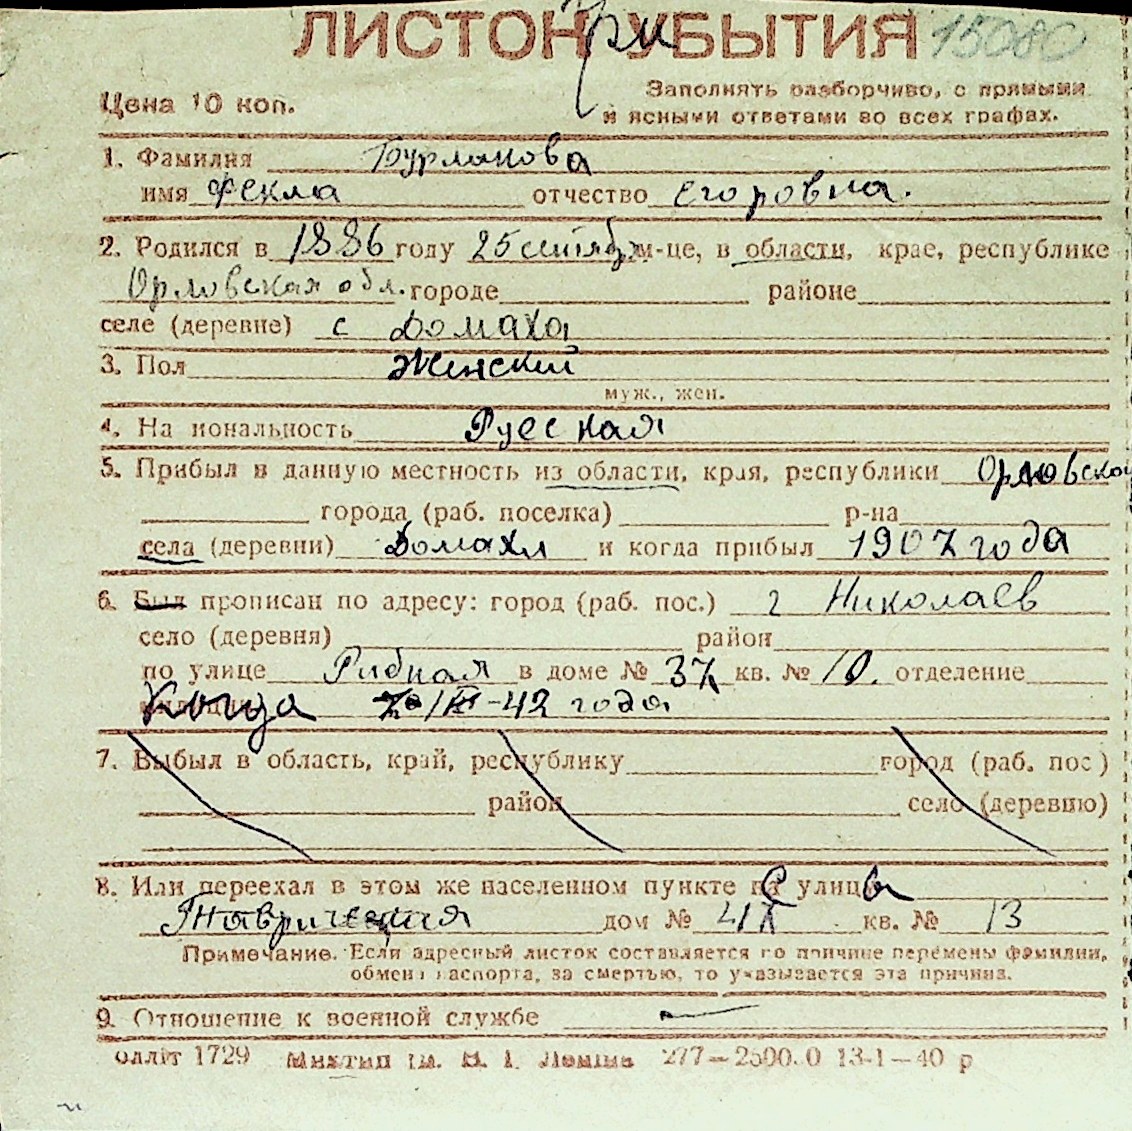 ЛИСТОК УБЫТИЯ При 15080
Цена 10 коп. Заполнять разборчиво, с прямыми
и ясными ответами во всех графах.
1. Фамилия Бурлакова
имя Фекла отчество Егоровна.
2. Родился в 1886 году 25 сентябр м-це, в области, крае, республике
Орловская обл. городе районе
селе (деревне) с Домаха
3. Пол Женский
муж., жен.
4. На иональность Русская
5. Прибыл в данную местность из области, края, республики Орловской
города (раб. поселка) р-на
села (деревни) Домахи и когда прибыл 1907 года
6. Был прописан по адресу: город (раб. пос.) г Николаев
село (деревня) район
по улице Рибная в доме № 37 кв. № 10. отделение
Когда -42 года
7. Выбыл в область, край, республику город (раб. пос)
район село (деревню)
8. Или переехал в этом же населенном пункте С улицы
Таврическая дом № 47 кв. № 13
Примечание. Если адресный листок составляется по причине перемены фамилии,
обмена паспорта, за смертью, то указывается эта причина.
9. Отношение к военной службе —
облліт 1729 277—2500.0 13-1—40 р